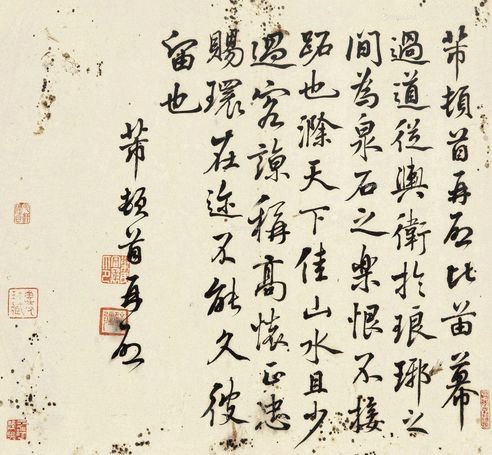 芾頓首再啟比留幕
過道從輿衛於琅琊之
間為泉石之樂恨不接
跖也滁天下佳山水且少
過客諒稱高懷正恐
賜環在迩不能久彼
留也
芾頓首再啟